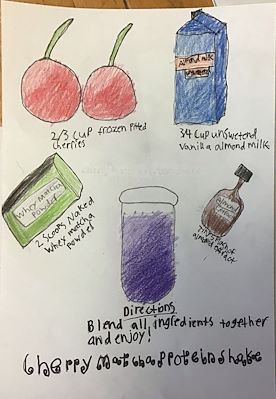 2/3 cup frozen pitted
cherries
almond milk
unsweetened
3/4 cup unsweetend
vanilla almond milk
Whey Matcha
Powder
2 scoops Naked
whey matcha
powder
almond
extract
Tiny splash of
almond extract
Directions
Blend all ingredients together
and enjoy!
Cherry Matcha Protein Shake